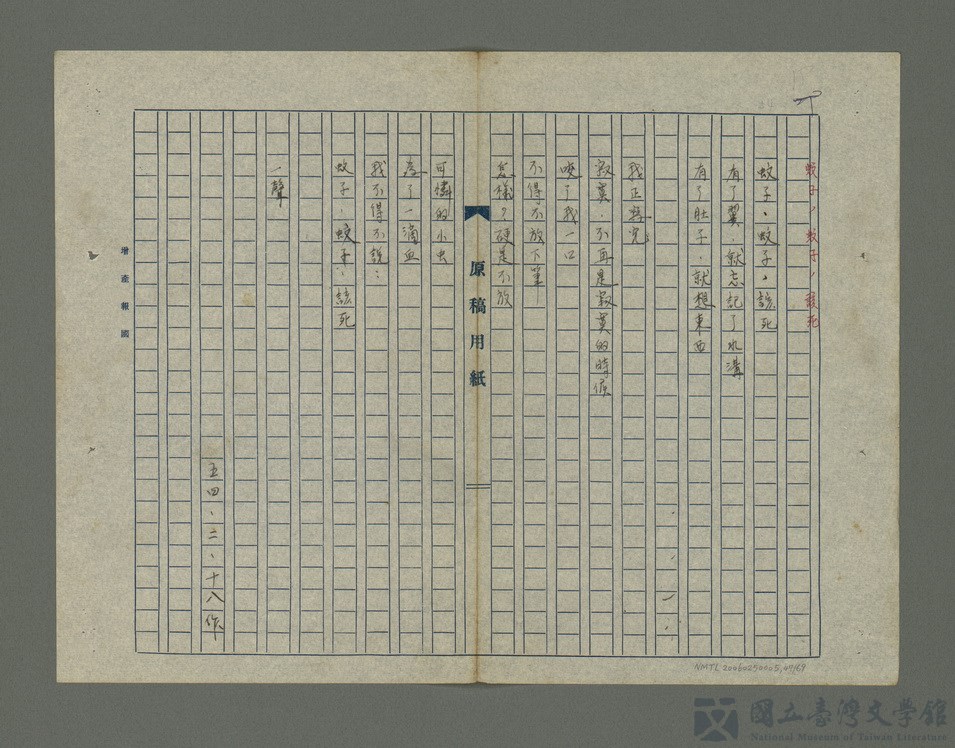 蚊子，蚊子，該死
蚊子、蚊子，該死
有了翼，就忘記了水溝
有了肚子，就想東西
我正寫完
寂寞，不再是寂寞的時候
咬了我一口
不得不放下筆
怎樣？硬是不放
可憐的小虫
為了一滴血
我不得不說：
蚊子，蚊子，該死
一聲
五四、二、十八作
原稿用紙
增產報國
NMTL 20060250005,49/69
國立臺灣文學館
National Museum of Taiwan Literature